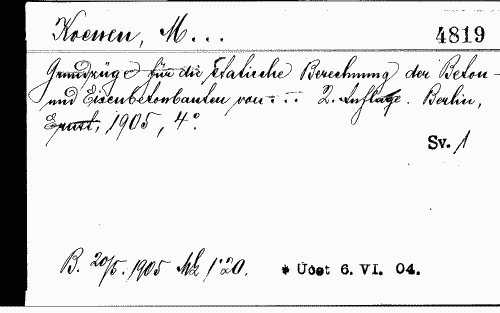 Koenen, M...
4819
Grundzüge für die statische Berechnung der Beton-
und Eisenbetonbauten von... 2. Auflage. Berlin,
Ernst, 1905, 4°.
Sv. 1
B. 20/5. 1905 Mk 1·20.
* Účet 6. VI. 04.